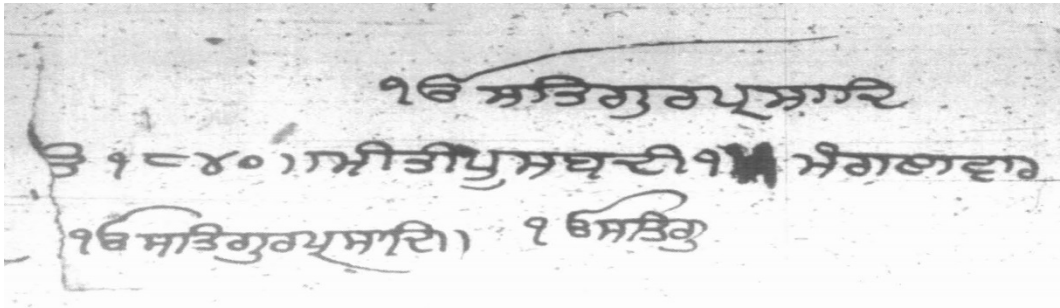 ੴ ਸਤਿਗੁਰਪ੍ਰਸਾਦਿ
੧੮੪੦।। ਮੀਤੀ ਪੁਸ ਬਦੀ ੧
ੴ ਸਤਿਗੁਰਪ੍ਰਸਾਦਿ।। ੴ ਸਤਿਗੁ